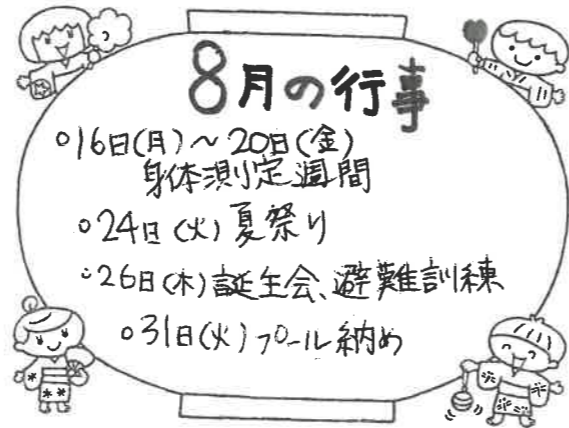 8月の行事
○16日(月)～20日(金)
身体測定週間
○24日(火)夏祭り
○26日(木)誕生会、避難訓練
○31日(火)プール納め